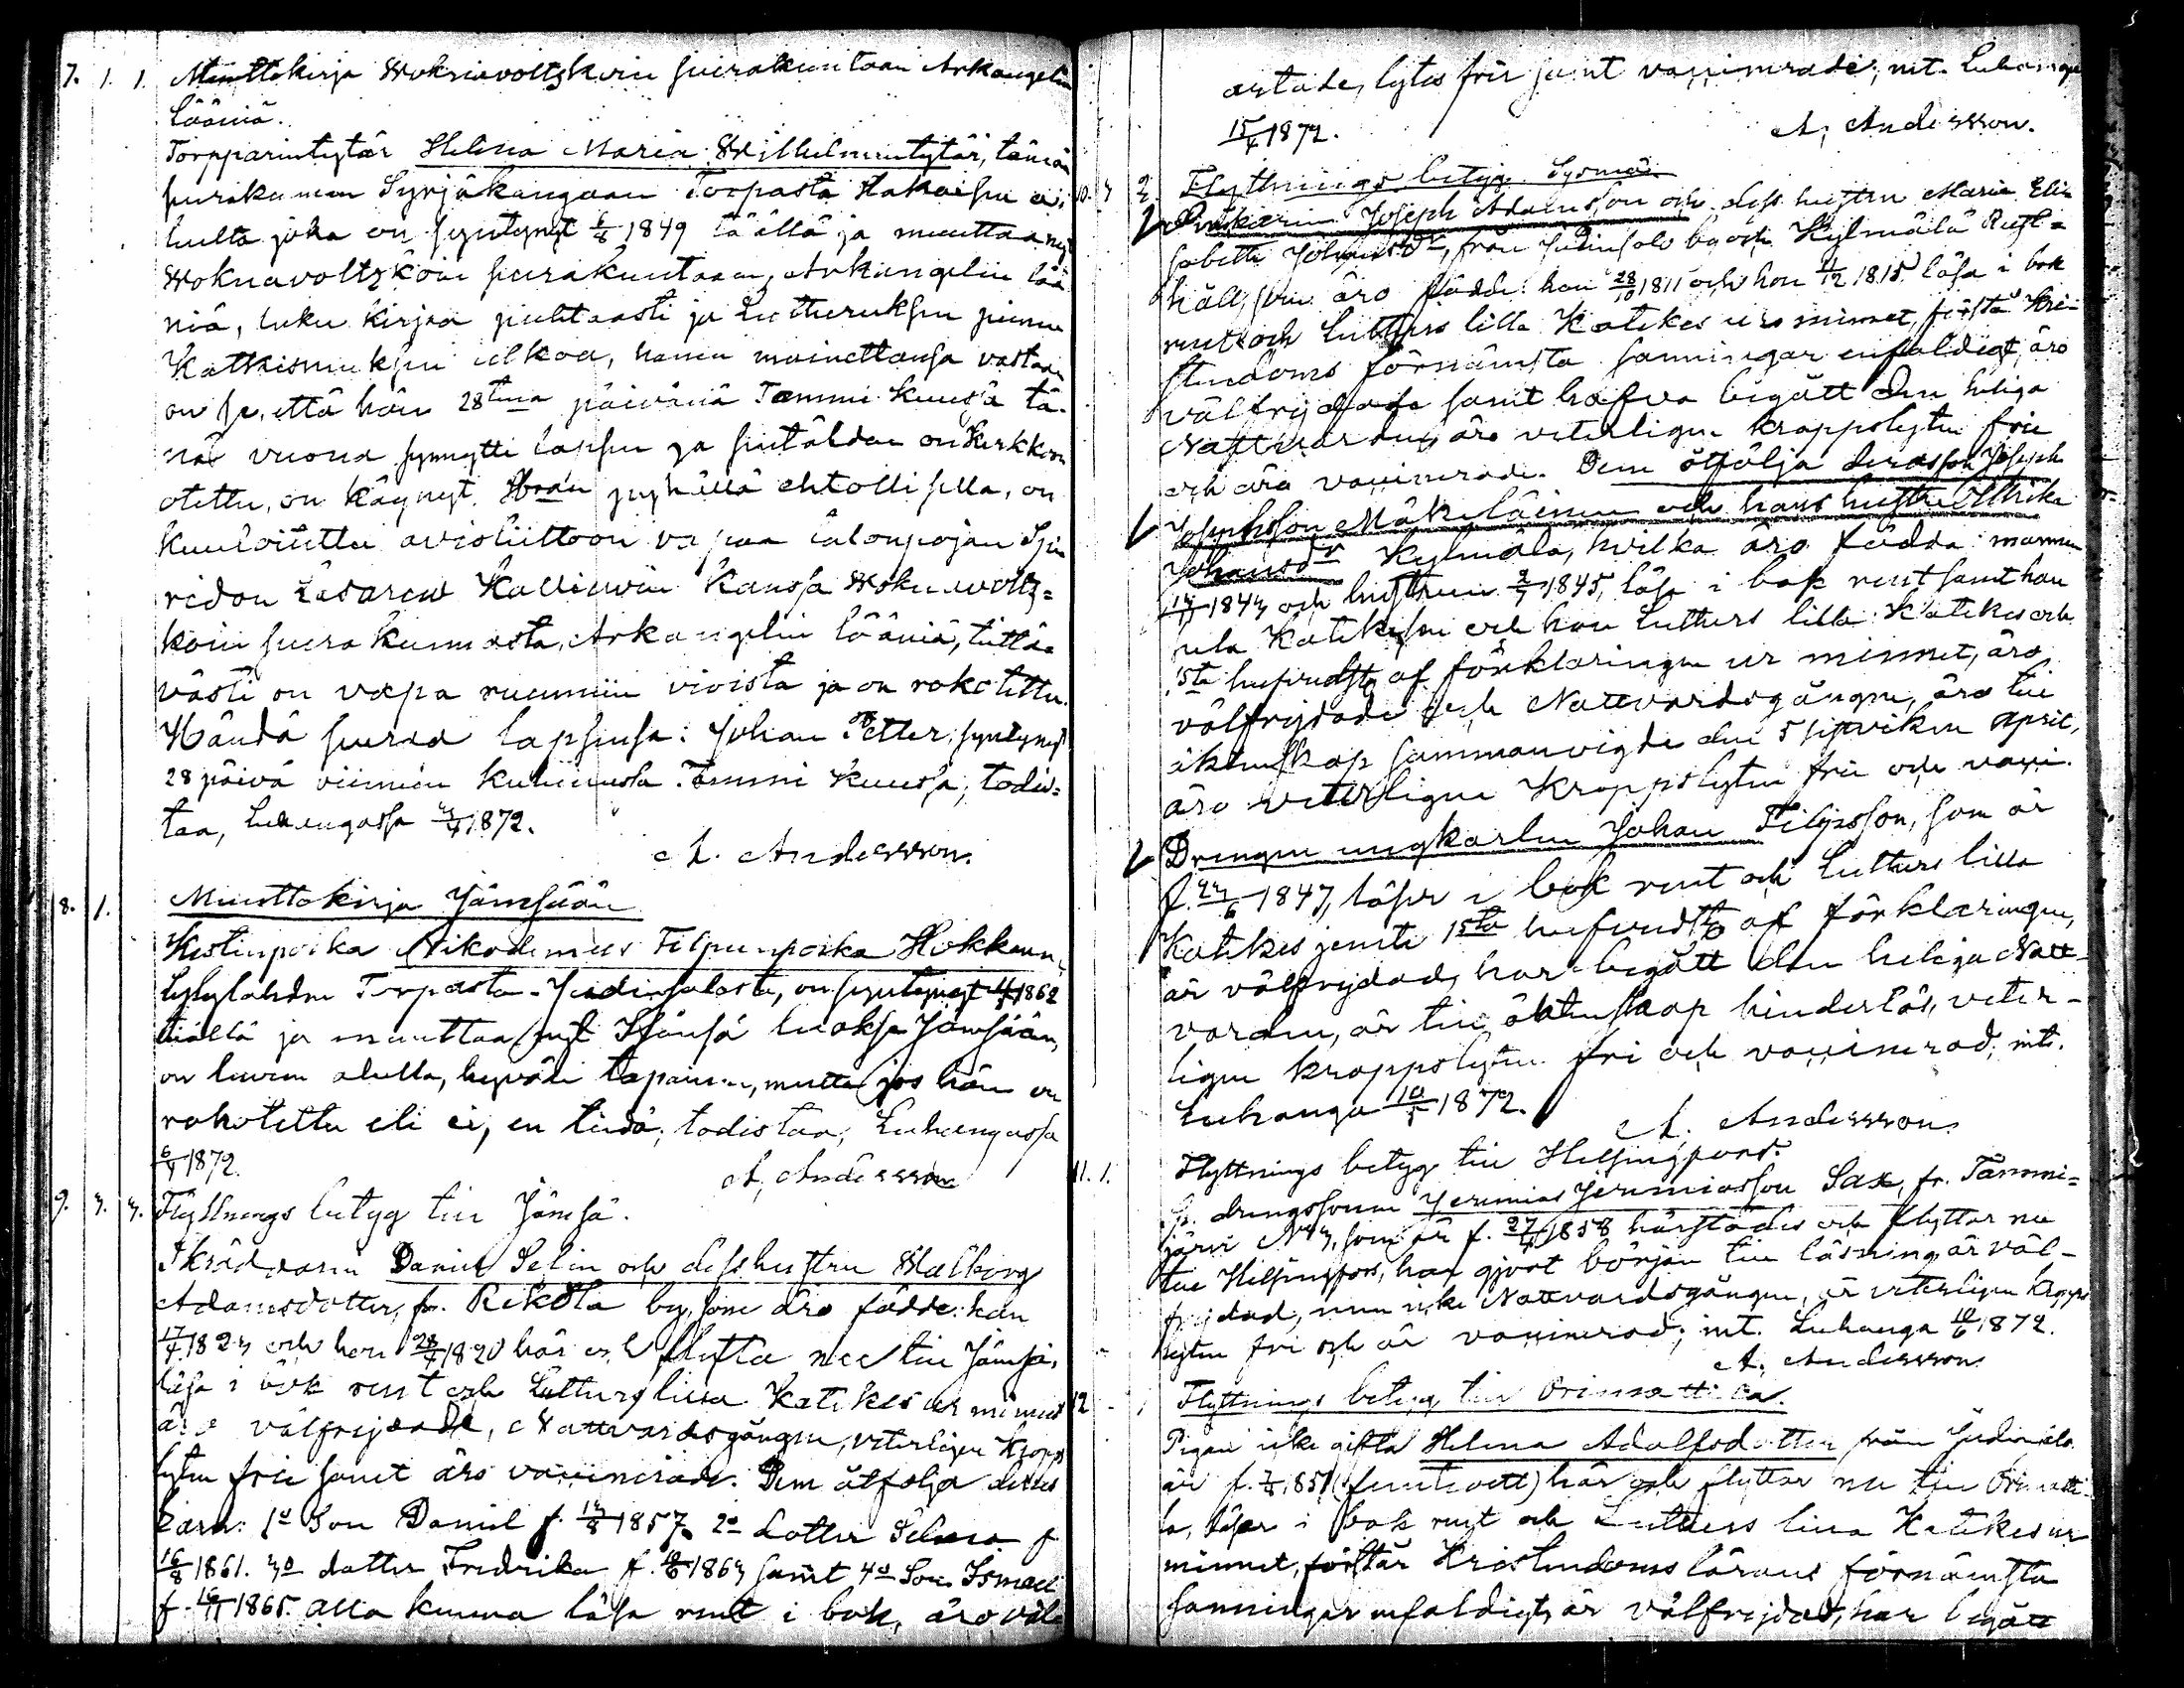 7. 1. 1. Muuttokirja Woknavoltzkoin seurakuntaan Arkangelin
lääniä.
Torpparintytär Helena Maria Wilhelmintytär, tämän
seurakunnan Syrjäkangaan Torpasta
hulta joka on syntynyt 6/8 1849 täällä ja muuttaa nyt
Woknavoltzkoin seurakuntaan, Arkangelin lää
niä, luku kirjaa puhtaasti ja Lutheruksen pienen
Katkismuksen ulkoa, hänen mainettansa vastaan
on se, että hän 28tena päivänä Tammi kuussa tä-
nä vuona synnytti lapsen ja sentähden on kirkkoon
otettu, on käynyt Herran pyhällä ehtollisella, on
kuuloitettu avioliittoon vapaa talonpojan Spi
ridon Lasarew Kallierwin kanssa Woknavoltz=
koin seurakunnasta, Arkangelin lääniä, tiettä=
västi on vapa ruumiin vioista ja on rokotettu.
Händä seuraa lapsensa: Johan Petter, syntynyt
28 päivä viimein kuluneessa Tammi kuussa; todis=
taa, Luhangassa 1872.
A. Andersson.
8. 1. Muuttokirja Jämsään
Kestinpoika Nikodemus Filpunpoika Hokkanen,
Lylylahden Torpasta Judinsalosta, on syntynyt 1862
täällä ja muuttaa nyt Isänsä luoksa Jämsään,
on luvun alulla, hyvä tapainen, mutta jos hän on
rokotettu eli ei, en tiedä; todistaa; Luhangassa
6/4 1872.
A. Andersson
9. 3. 3. Flyttnings betyg till Jämsä.
Skräddaren Daniel Selin och dess hustru Walborg
Adamsdotter, fr. Rekola by, som äro födde: han
17/7 1823 och hon 28/7 1820 här och flytta nu till Jämsä,
läsa i bok rent och Lutters lilla Katikes ur minnet
äro välfrejdade, Nattvardsgängne, veterligen kropps
lyten frie samt äro vaxinerade. Dem åtfölja deras
barn: 1o Son Daniel f. 13/8 1857, 2o dotter Selma f.
16/8 1861. 3o dotter Fredrika f. 1863 samt 4o Son Ismael
f. 16/11 1865. alla kunna läsa rent i bok, äro väl
artade, lytes frie samt vaxinerade; int. Luhanga
15/4 1872.
A. Andersson.
10. 3 2. Flyttnings betyg Sysmä.
Joseph Adamsson och dess hustru Maria Eli
sabetha Johansdr, från Judinsalo by och Kylmälä Rust=
håll, som äro födde: han 28/10 1811 och hon 11/12 1815 läsa i bok
rent och Lutters lilla Katikes urs minnet, förstå Kri-
stendoms förnämsta sanningar enfaldigt, äro
välfrejdade samt hafva begått den heliga
Nattvarden, äro veterligen kroppslyten frie
och äro vaxinerade. Dem åtfölja deras son Joseph
Josephsson Mäkeläinen och hans hustru Ulrika
Johansdr Kylmälä, hvilka äro födda: mannen
1843 och hustrun 2/7 1845, läsa i bok rent samt han
hela Katikesen och hon Lutters lilla Katikes och
15te hufvudst. af förklaringen ur minnet, äro
välfrejdade och Nattvardsgängne, äro till
äktenskap sammanvigde den 5 sistvikne April,
äro veterligen kroppslyten frie och vaxi.
Drengen ungkarlen Johan Filipsson, som är
f. 1847, läser i bok rent och Lutters lilla
Katikes jemte 15te hufvudst af förklaringen,
är välfrejdad, har begått den heliga Natt-
varden, är till äktenskap hinderlös, veter-
ligen kroppslyten fri och vaxinerad; int.
Luhanga 10/5 1872.
A. Andersson.
11. 1. Flyttnings betyg till Helsingfors.
drengssonen Jeremias Jeremiasson Sax, fr. Tammi=
järvi No 3, som är f. 27/4 1858 härstädes och flyttar nu
till Helsingfors, har gjort början till läsning är väl-
frejdad, men icke Nattvardsgången, är veterligen kropps
lyten fri och är vaxinerad; int. Luhanga 10/6 1872.
A. Andersson.
12. 1 Flyttnings betyg till Orimattila.
Pigan icke gifta Helena Adolfsdotter från Judinsalo
är f. 1851 (femtioett) här och flyttar nu till Orimatti-
la, läser i bok rent och Lutters lilla Katikes ur
minnet, förstår Kristendoms lärans förnämsta
sanningar enfaldigt, är välfrejdad, har begått